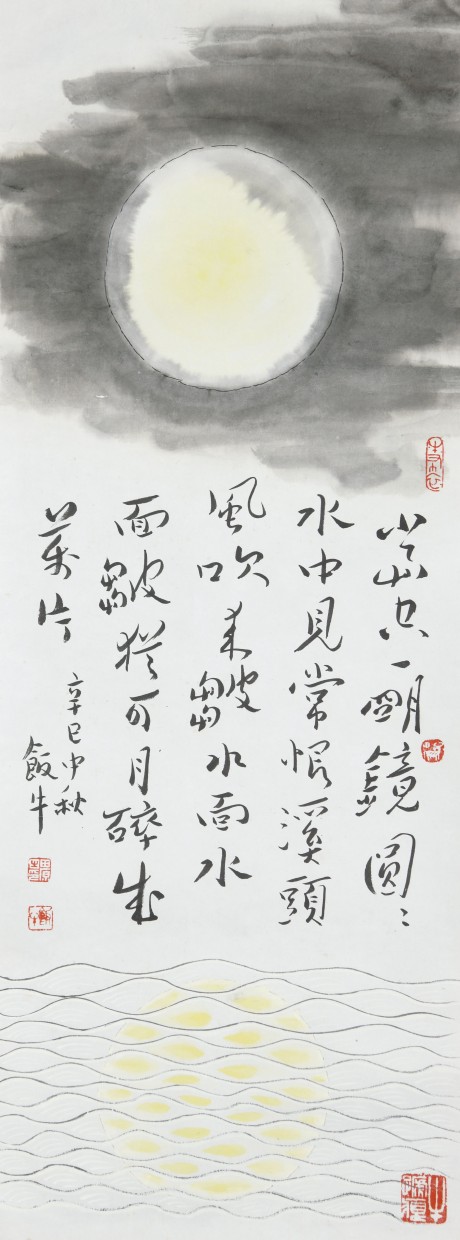 當空一明鏡圓〻
水中見常恨溪頭
風吹來皺水面水
面皺猶可月碎成
萬片
辛巳中秋
飯牛